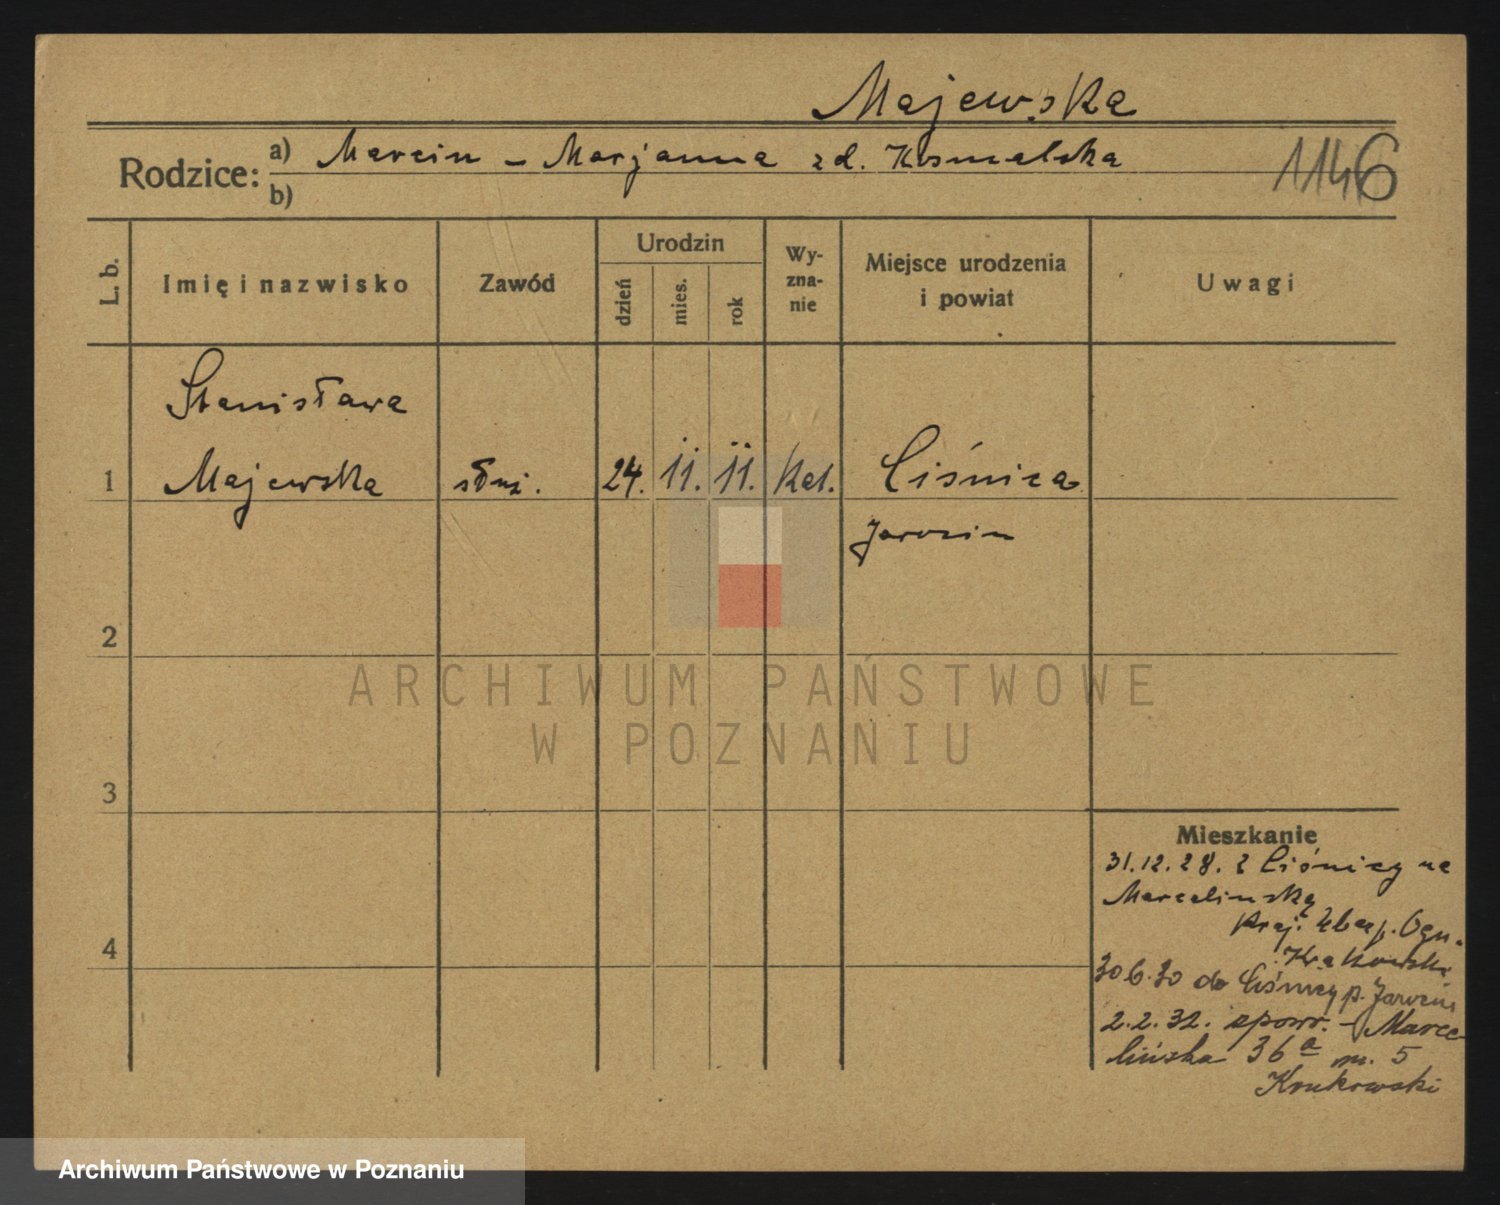 Majewska
Rodzice:
a) Marcin – Marjanna z d. Kosmalska
b)
1146
L. b.
Imię i nazwisko
Zawód
Urodzin
dzień
mies.
rok
Wy-
zna-
nie
Miejsce urodzenia
i powiat
Uwagi
Stanisława
1 Majewska służ. 24. 11. 11. Kat. Ciśnica
Jarocin
2
3
4
Mieszkanie
31.12.28. z Ciśnicy na
Marcelińską
Ogn.
Krakowska
30.6.30 do Ciśnicy p. Jarocin
2.2.32. spowr. – Marce-
lińska 36a m. 5
Krukowski
ARCHIWUM PAŃSTWOWE
W POZNANIU
Archiwum Państwowe w Poznaniu